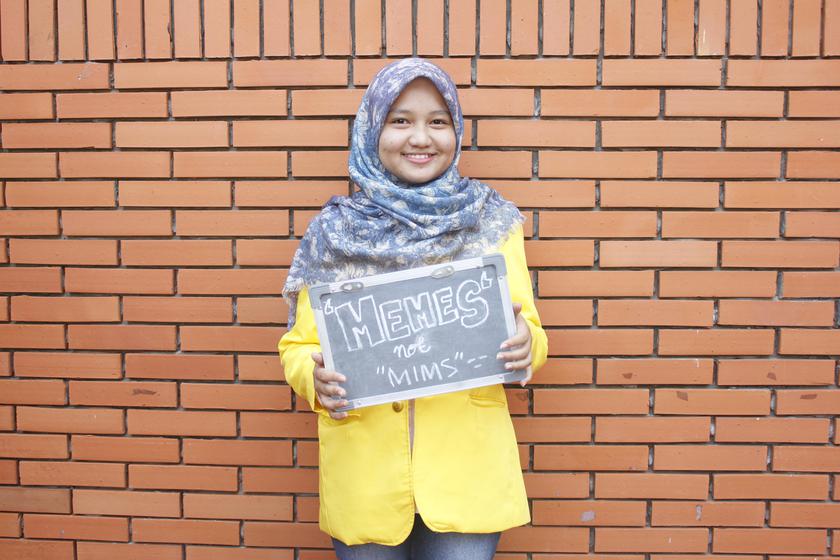 "MEMES"
not
"MIMS"--